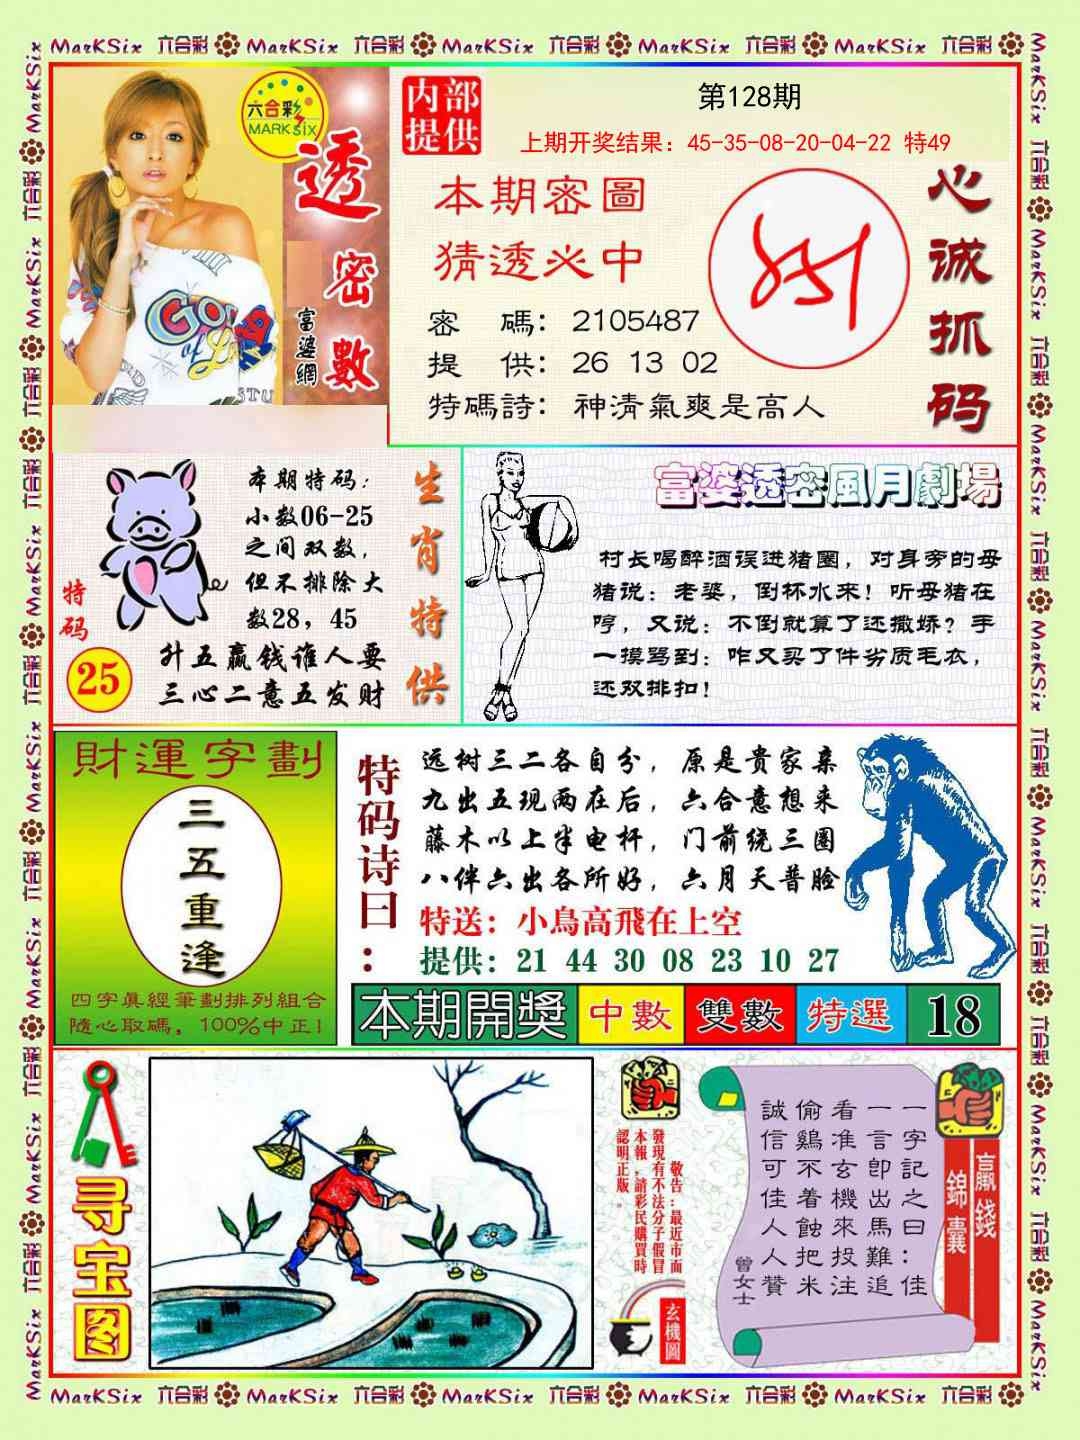 MarKSix 六合彩 MarKSix 六合彩 MarKSix 六合彩 MarKSix 六合彩 MarKSix 六合彩
六合彩
MARK SIX
透密數
富婆網
内部
提供
第128期
上期开奖结果：45-35-08-20-04-22 特49
本期密圖
猜透必中
密 碼：2105487
提 供：26 13 02
特碼詩：神清氣爽是高人
心诚抓码
本期特码：
小数06-25
之间双数，
但不排除大
数28，45
特码
25
升五赢钱谁人要
三心二意五发财
生肖特供
富婆透密風月劇場
村长喝醉酒误进猪圈，对身旁的母
猪说：老婆，倒杯水来！听母猪在
哼，又说：不倒就算了还撒娇？手
一摸骂到：咋又买了件劣质毛衣，
还双排扣！
財運字劃
三五重逢
四字真經筆劃排列組合
隨心取碼，100%中正！
特码诗曰：
远树三二各自分，原是贵家亲
九出五现两在后，六合意想来
藤木以上半电杆，门前绕三圈
八伴六出各所好，六月天普脸
特送：小鳥高飛在上空
提供：21 44 30 08 23 10 27
本期開獎 中數 雙數 特選 18
寻宝图
敬告：最近市面
發現有不法分子假冒
本報，請彩民購買時
認明正版。
玄機圖
贏錢
錦囊
一字記之曰：佳
一言即出馬難追
看准玄機來投注
偷鷄不着蝕把米
誠信可佳人人贊
曾女士
MarKSix 六合彩 MarKSix 六合彩 MarKSix 六合彩 MarKSix 六合彩 MarKSix 六合彩